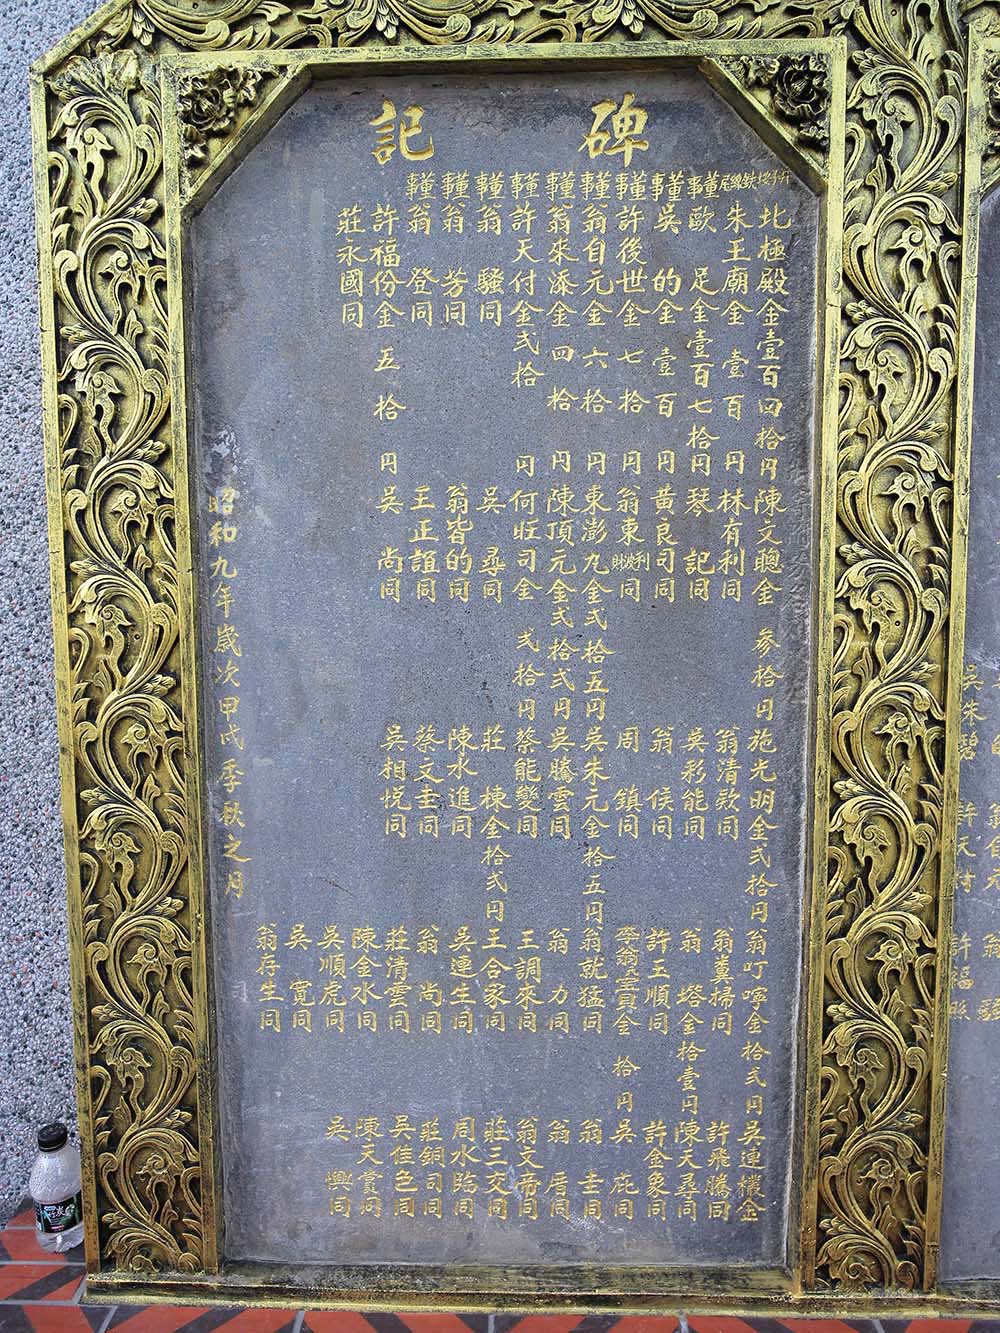 碑記
北極殿金壹百四拾円
朱王廟金壹百円
董事歐足金壹百七拾円
董事吳的金壹百円
董事許後世金七拾円
董事翁自元金六拾円
董事翁來添金四拾円
董事許天付金弍拾円
董事翁騷同
董事翁芳同
董事翁登同
許福份金五拾円
莊永國同
陳文聰金參拾円
林有利同
琴記同
黃良司同
翁東波利財同
東澎九金弍拾五円
陳頂元金弍拾弍円
何旺司金弍拾円
吳尋同
翁皆的同
王正誼同
吳尚同
施光明金弍拾円
翁清欵同
吳彩能同
翁侯同
周鎮同
吳朱元金拾五円
吳騰雲同
蔡能變同
莊棟金拾弍円
陳水進同
蔡文圭同
吳相悅同
翁叮嚀金拾弍円
翁糞掃同
翁塔金拾壹円
許玉順同
李翁金員金拾円
翁就猛同
翁力同
王調來同
王合家同
吳連生同
翁尚同
莊清雲同
陳金水同
吳順虎同
吳寬同
翁存生同
吳連欉金
許飛騰同
陳天尋同
許金象同
吳庇同
翁圭同
翁厝同
翁文帝同
莊三交同
周水臨同
莊銅司同
吳佳色同
陳天賞同
吳興同
昭和九年歲次甲戌季秋之月
吳朱碧
許天付
許福
翁自元
翁騷